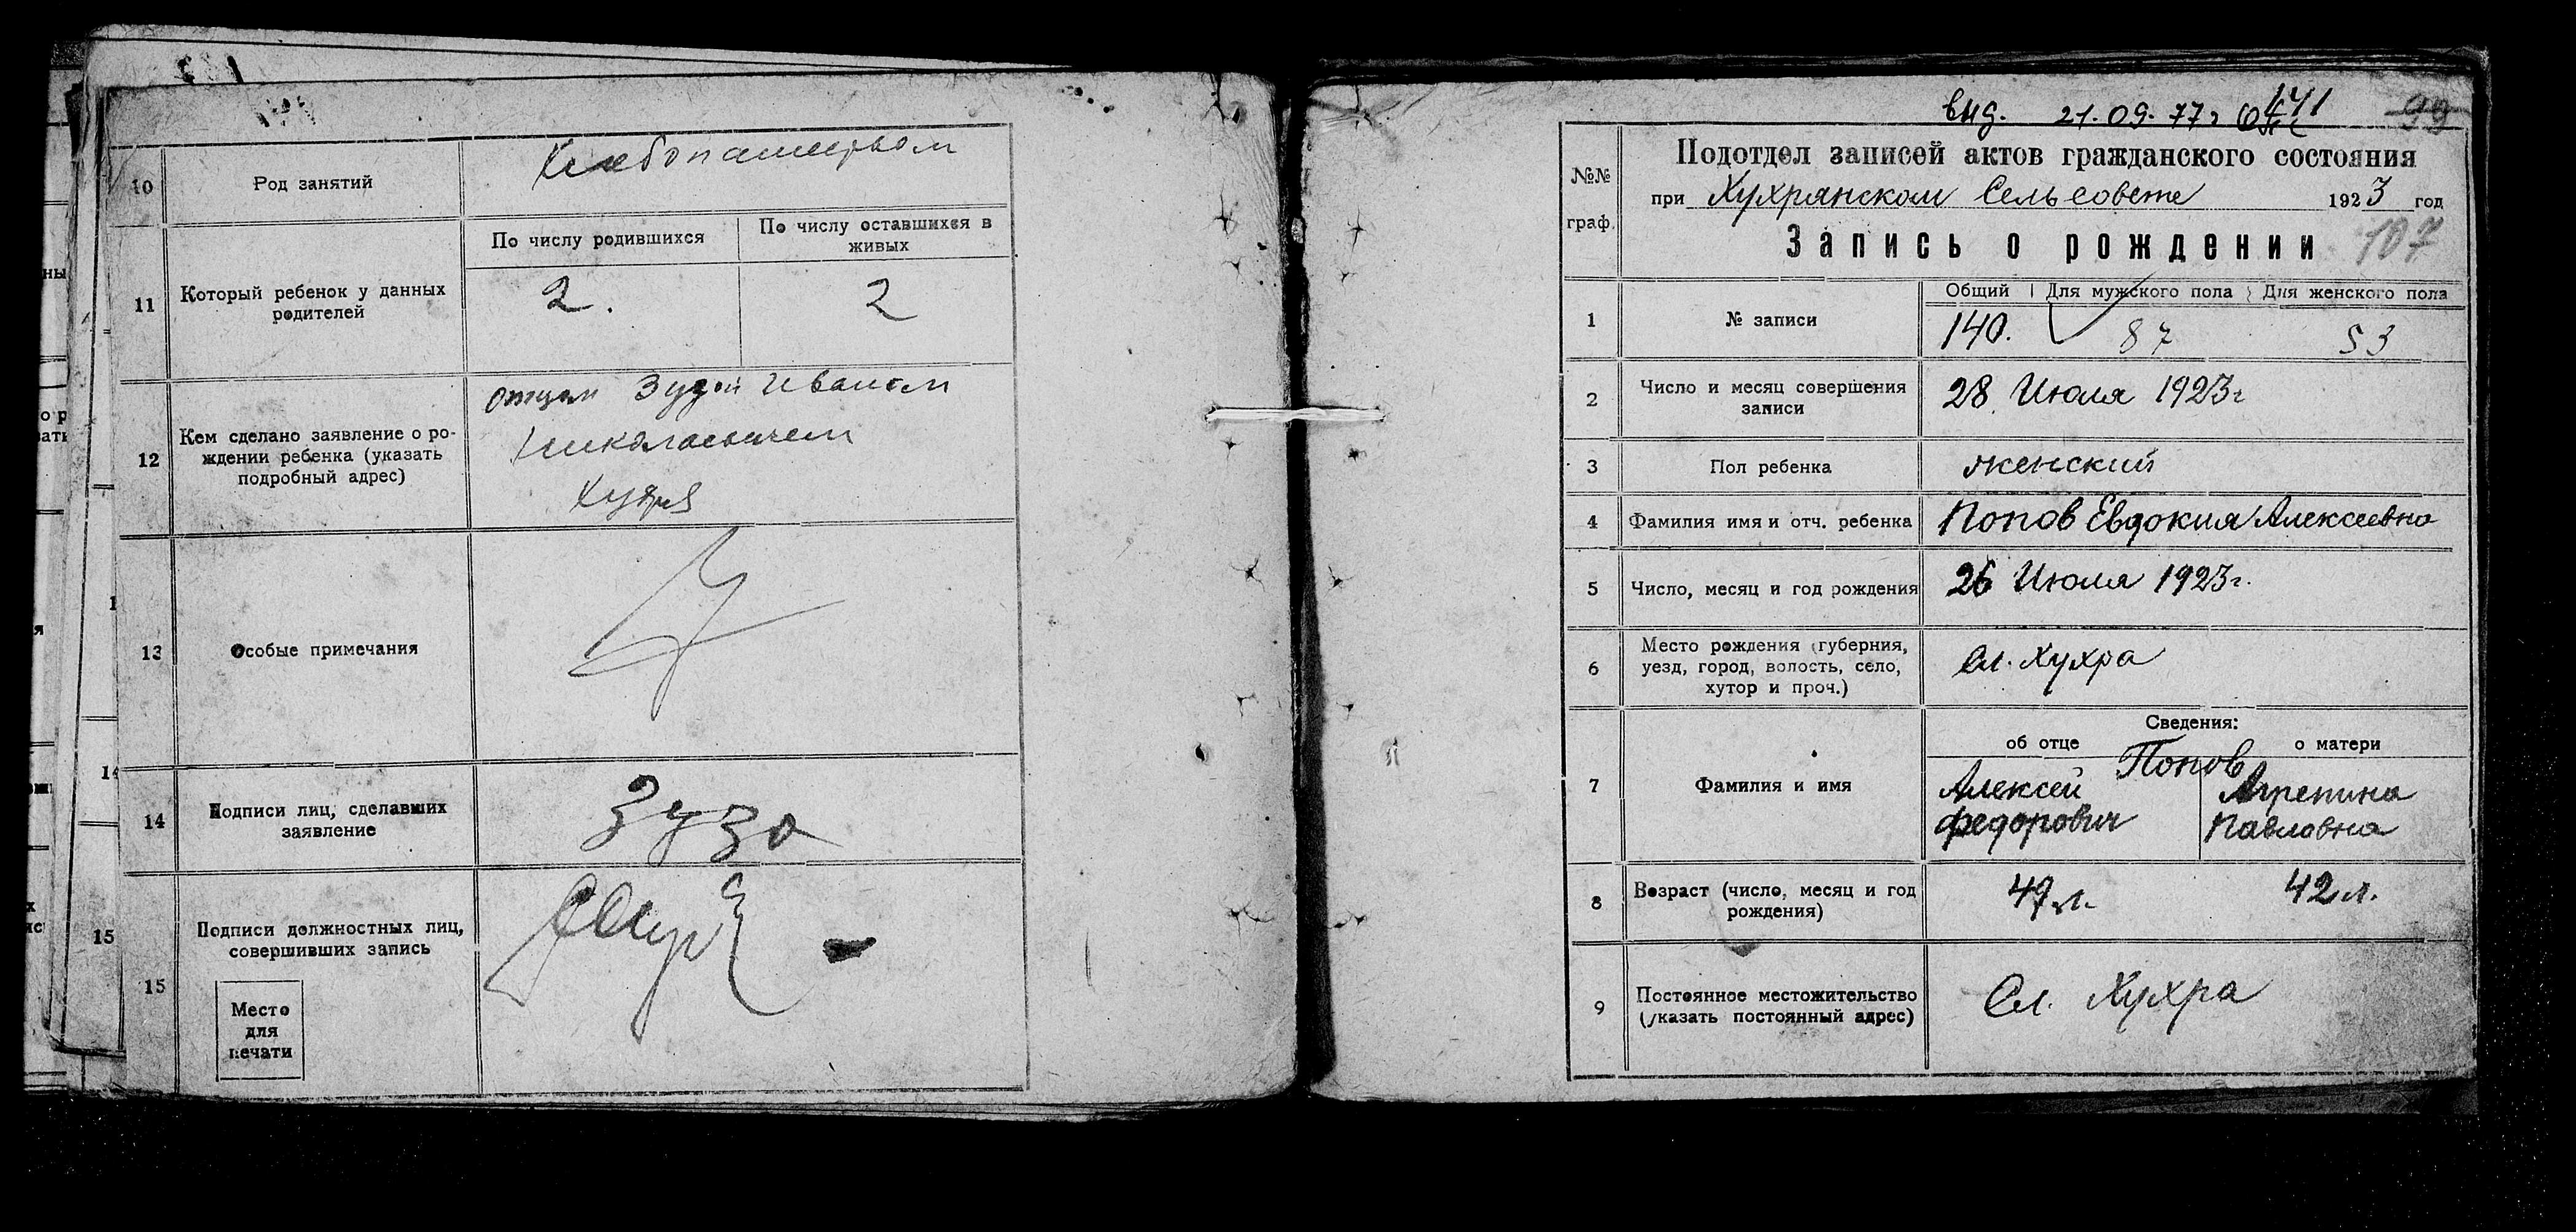 10
Род занятий
Хлебопашеством
11
Который ребенок у данных
родителей
По числу родившихся
По числу оставшихся в
живых
2.
2
12
Кем сделано заявление о ро-
ждении ребенка (указать
подробный адрес)
отцом Зузой Иваном
Николаевичем
Хухря
13
Особые примечания
14
Подписи лиц, сделавших
заявление
Зуза
15
Подписи должностных лиц,
совершивших запись
Место
для
печати
14
15
21.09.77г
99
№№
граф.
Подотдел записей актов гражданского состояния
при Хухрянском Сельсовете 1923 год
Запись о рождении 107
1
№ записи
Общий Для мужского пола Для женского пола
140. 87 53
2
Число и месяц совершения
записи
28 Июля 1923г
3
Пол ребенка
женский
4
Фамилия имя и отч. ребенка
Попов Евдокия Алексеевна
5
Число, месяц и год рождения
26 Июля 1923г.
6
Место рождения (губерния,
уезд, город, волость, село,
хутор и проч.)
Сл. Хухра
7
Фамилия и имя
Сведения:
об отце
о матери
Попов
Алексей
Федорович
Агрепина
Павловна
8
Возраст (число, месяц и год
рождения)
49 л.
42 л.
9
Постоянное местожительство
(указать постоянный адрес)
Сл. Хухра